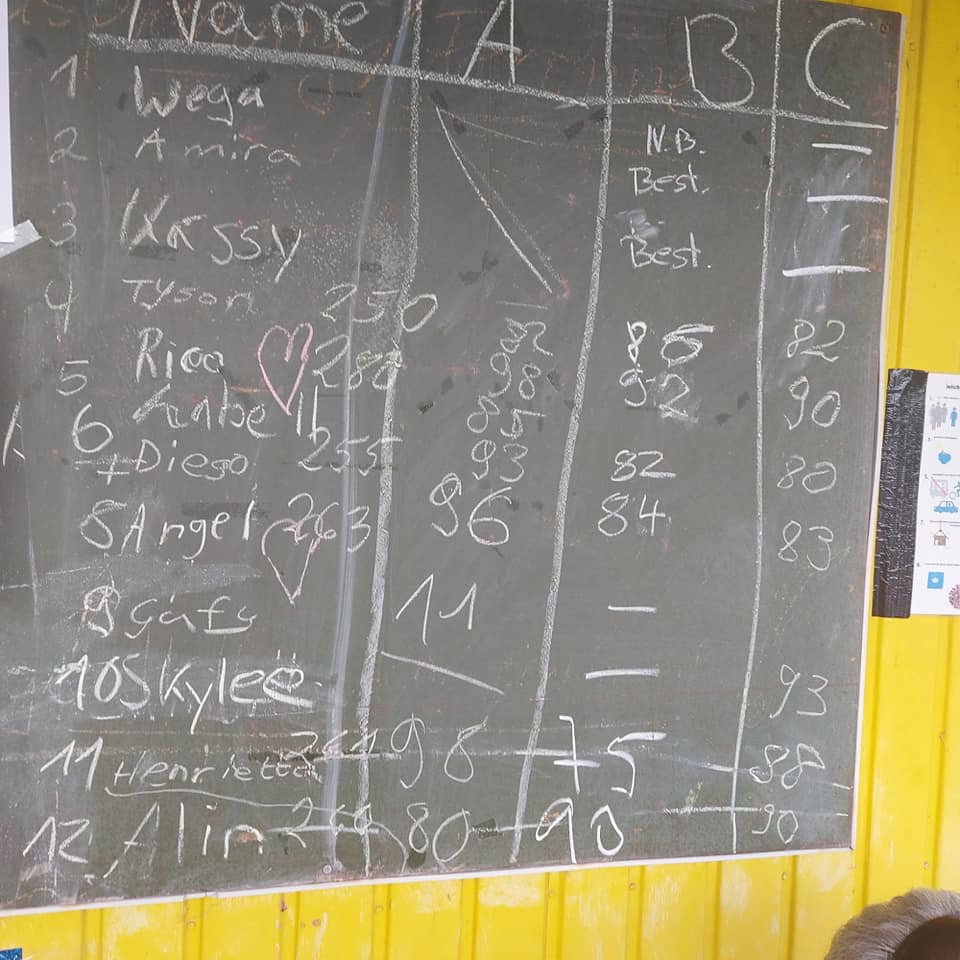 Name A B C
1 Wega
2 Amira N.B. —
Best. —
3 Kassy Best. —
4 Tyson 250 82 86 82
5 Rica 280 98 92 90
6 85
7 Diego 255 93 82 80
8 Angel 263 96 84 83
9 11 —
10 Skylee — 93
11 Henrietta 261 98 75 88
12 Alin 80 90 90